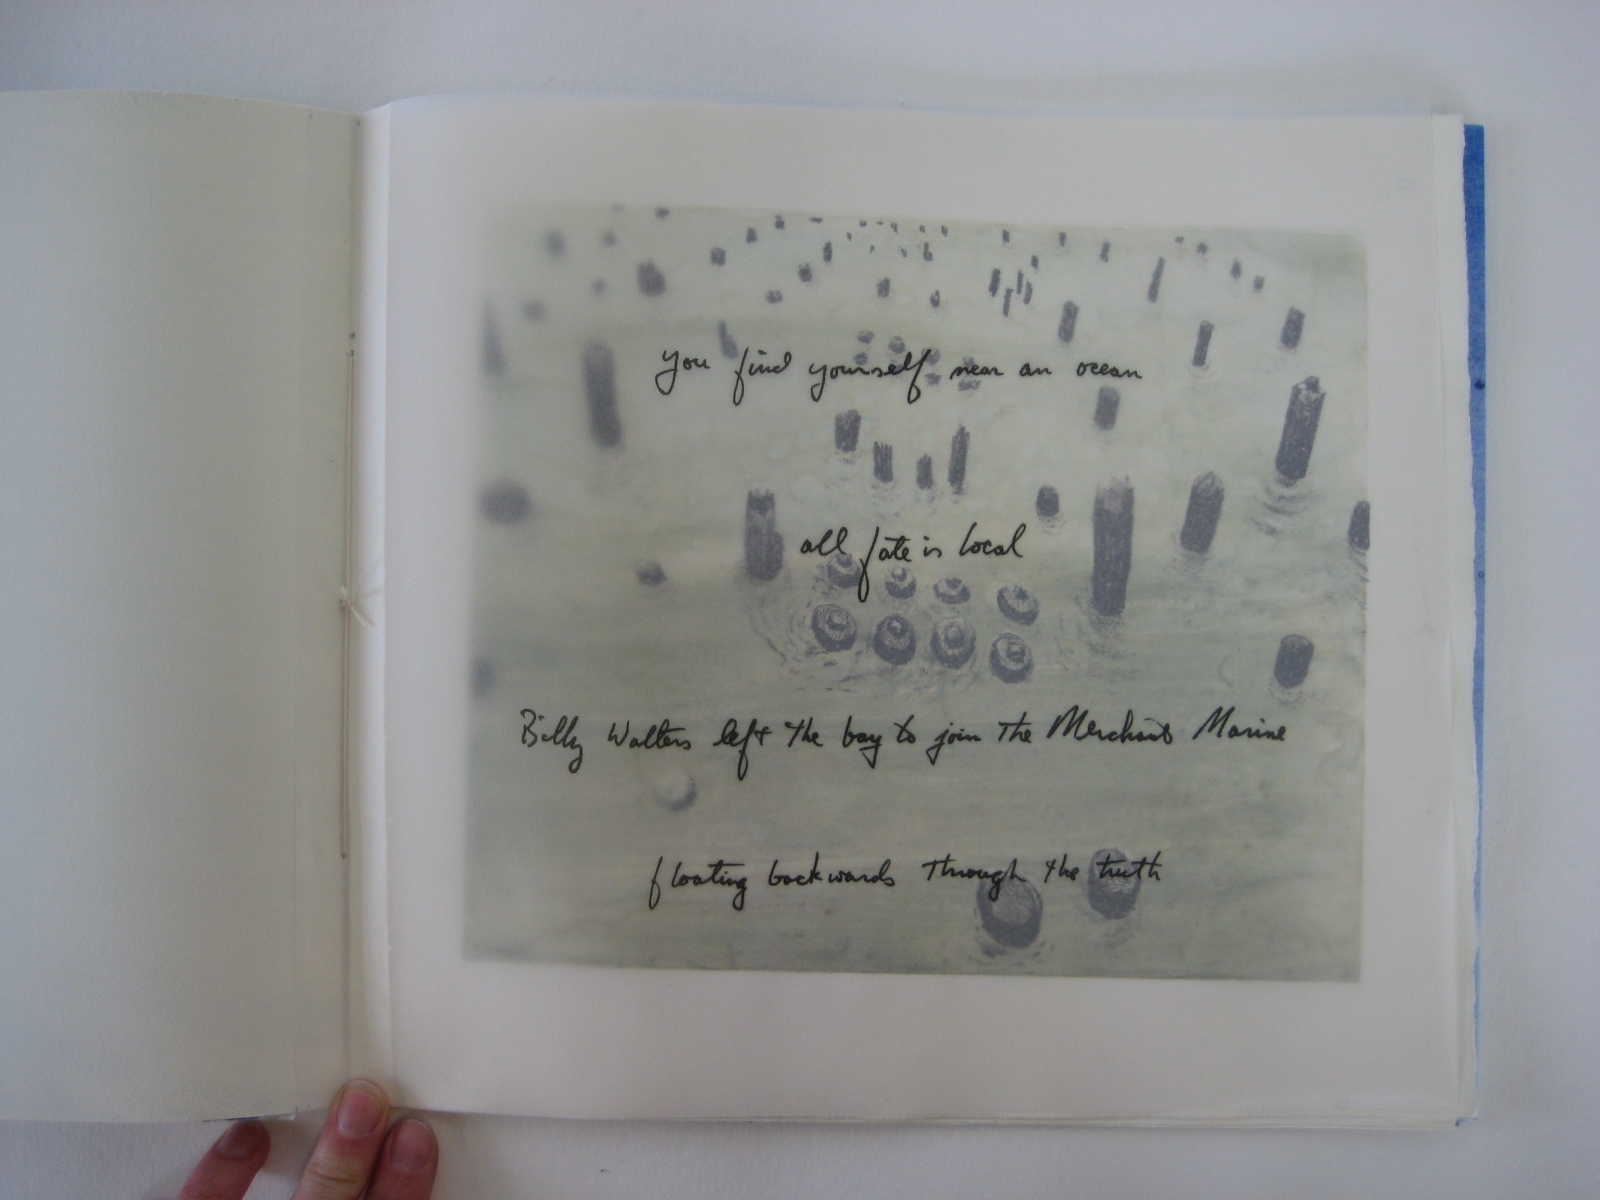 you find yourself near an ocean
all fate is local
Billy Walters left the bay to join the Merchant Marine
floating backwards through the truth